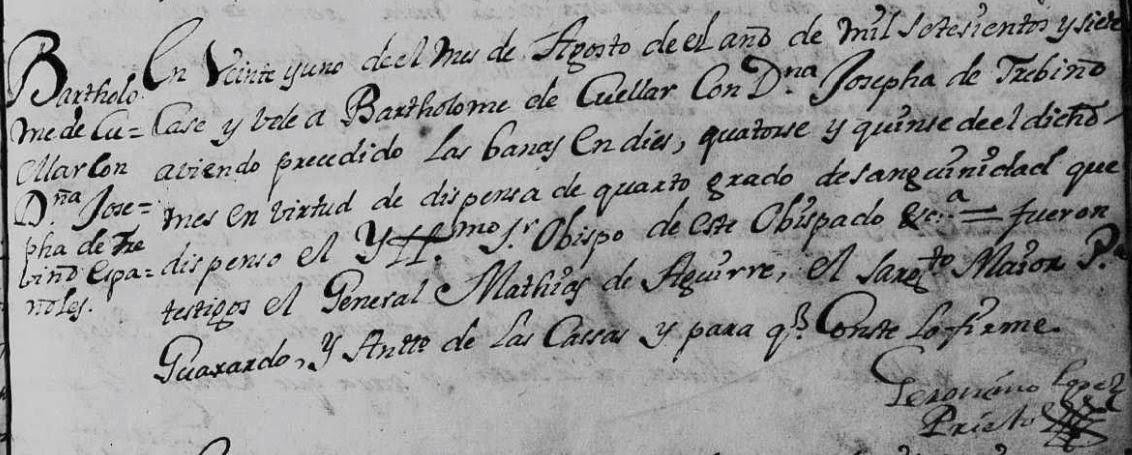 Bartholo
me de Cu=
ellar con
Dña Jose=
pha de Tre
bino Espa=
noles.
En Veinte y uno de el Mes de Agosto de el año de mil setesientos y siete
Case y vele a Bartholome de Cuellar Con Dna Josepha de Trebino
aviendo precedido las banas En dies, quatorse y quinse de el dicho
mes en virtud de dispensa de quarto grado de sanguinidad que
dispenso el Yllmo Sr Obispo de este Obispado &c.a = fueron
testigos el General Mathias de Aguirre, el sargto Maior P.o
Guaxardo, y Antto de las Cassas y para q. Conste lo firme.
Geronimo Lopez
Prieto